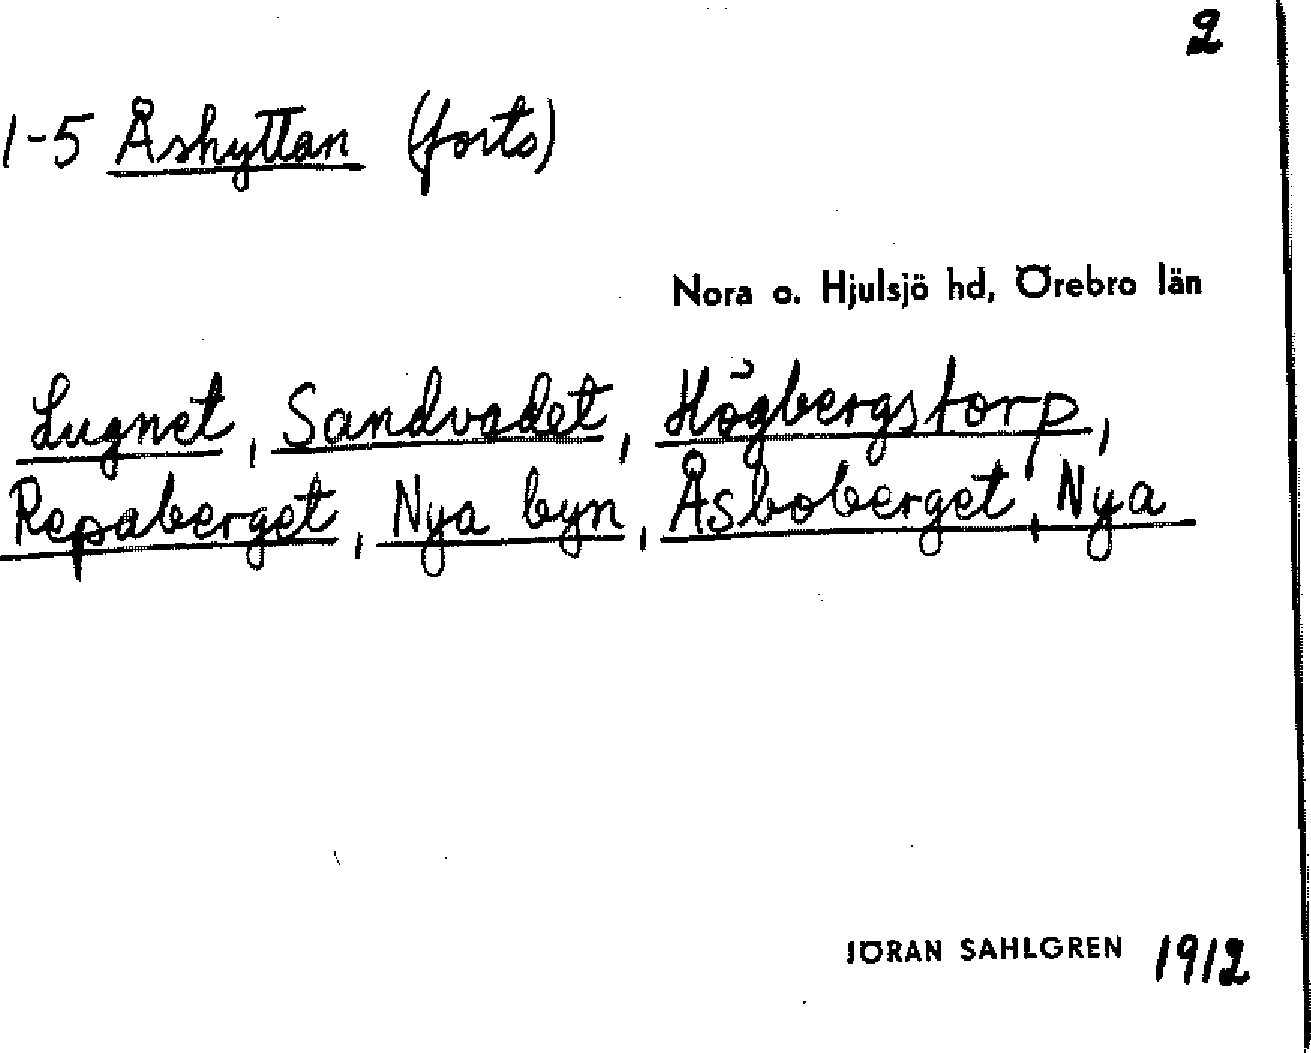 2
1-5 Åshyttan (forts)
Nora o. Hjulsjö hd, Örebro län
Lugnet, Sandvadet, Högbergstorp,
Repaberget, Nya byn, Åsboberget, Nya
JÖRAN SAHLGREN 1912